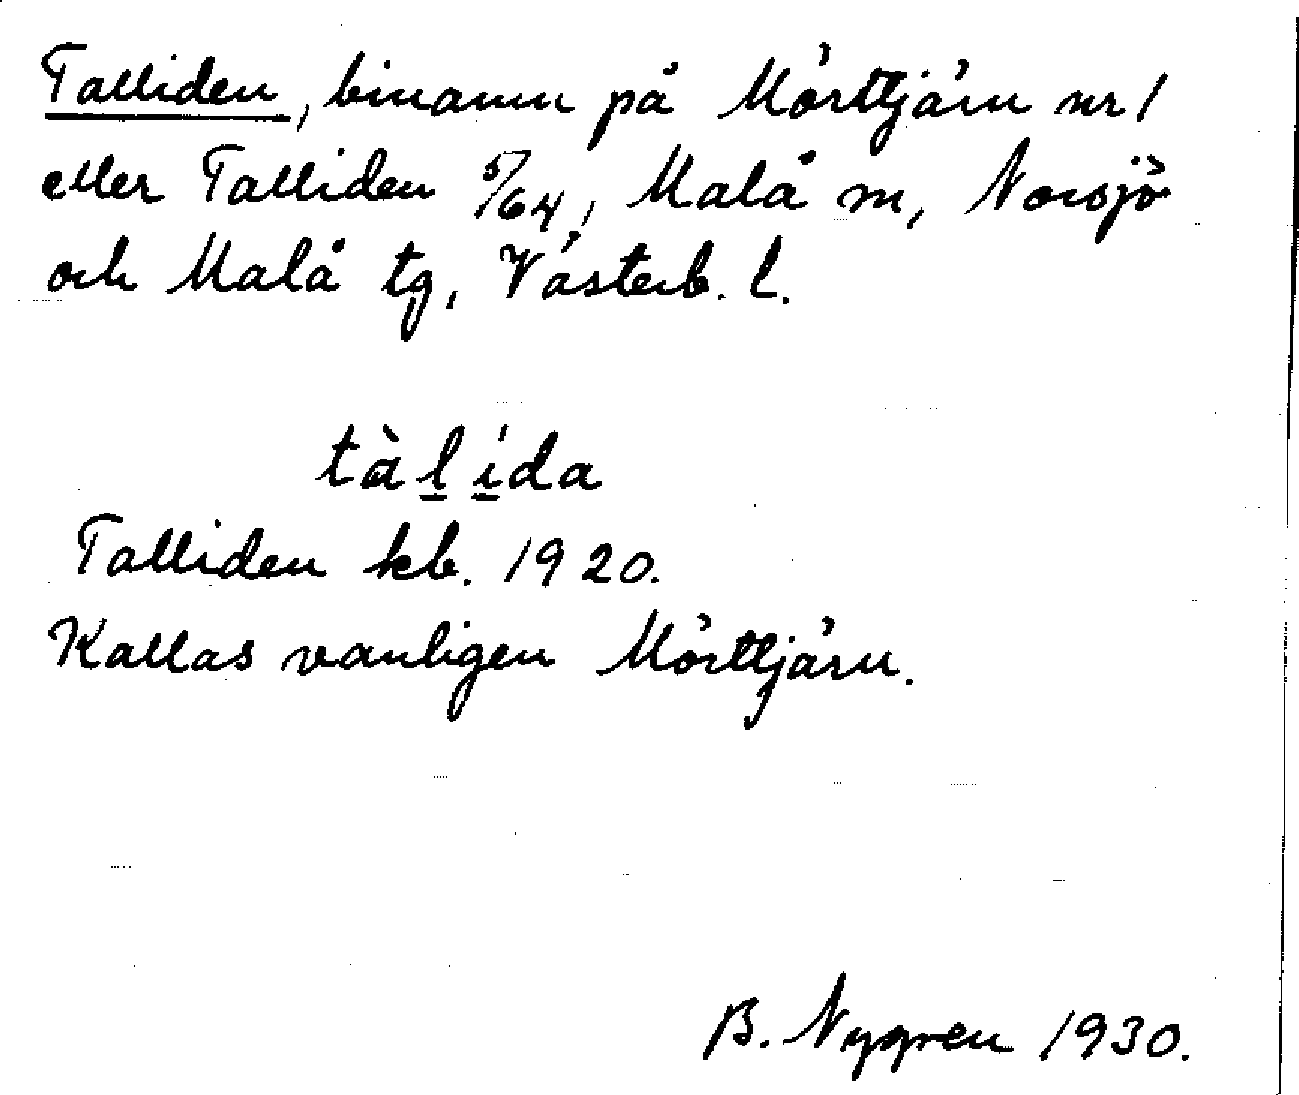 Talliden, binamn på Mörttjärn nr 1
eller Talliden 5/64, Malå m, Norsjö
och Malå tg, Västerb. l.
tàl̲í̲da
Talliden kb. 1920.
Kallas vanligen Mörttjärn.
B. Nygren 1930.